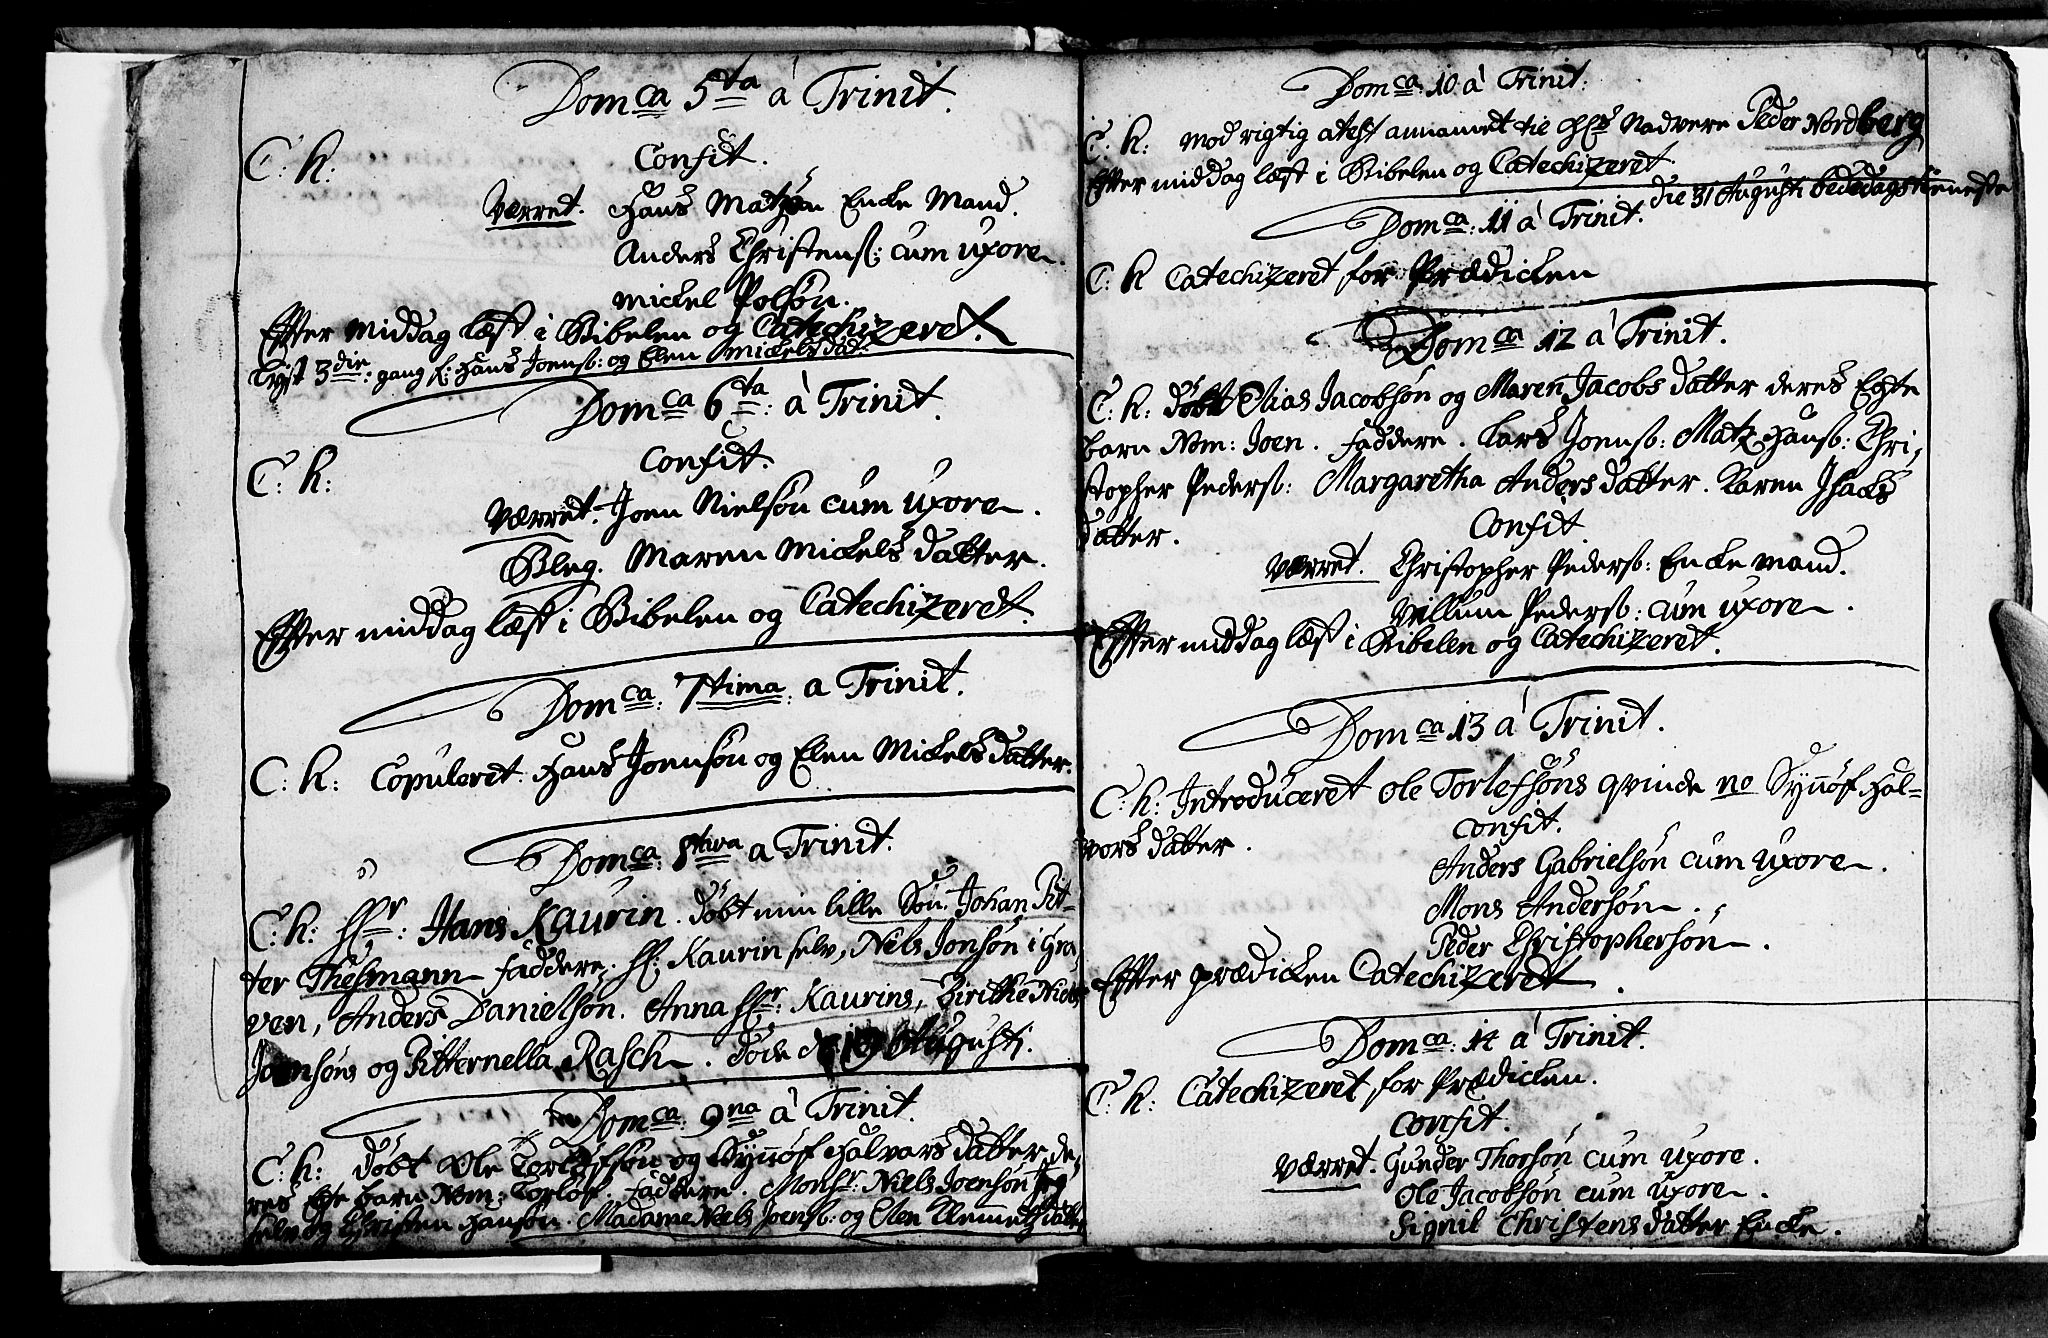 Domca 5ta à Trinit.
C: K:
Confit.
Værret. Hans Matzøn Encke Mand.
Anders Christensß: cum uxore.
Mickel Polsøn.
Effter middag læst i Bibelen og Catechizeret.
Lyst 3die gang f: Hans Joensß: og Elen Mickelsdat:
Domca 6ta: à Trinit.
C: K:
Confit.
Værret. Joen Nielsøn cum uxore.
Bleg. Maren Mickels datter.
Effter middag læst i Bibelen og Catechizeret.
Domca: 7tima: a Trinit.
C: K: Copuleret Hans Joensøn og Elen Mickels datter.
Domca: 8tava a Trinit.
C: K: Hr: Hans Kaurin. døbt min lille Søn Johan Pit-
ter Thesmann Faddere. H: Kaurin selv, Niels Jonsøn i Gra-
ven, Anders Danielsøn. Anna Hr: Kaurins, Birithe Niels
Joensøns og Pitternella Rasch. døde d: 19 Augusti.
Domca: 9na à Trinit.
C: K: døbt Ole Torlefsøn og Synnøf Halvors datter de-
res Egte barn Nom: Torlof. Faddere. Monsr: Niels Joensøn Jeg
selv og Christen Hansøn. Madame Niels Joensß: og Elen Clemmetzdatter
Domca: 10 à Trinit:
C: K: Mod rigtig atest annamet til HErs Nadvere Peder Nordberg
Effter middag læst i Bibelen og Catechizeret.
die 31 Augusti bededagstieneste
Domca: 11 à Trinit.
C: K Catechizeret for Prædicken
Domca 12 à Trinit.
C: K: døbt Elias Jacobsøn og Maren Jacobs datter deres Egte
barn Nom: Joen. Faddere. Lars Joensß: Matz Hansß: Chri-
stopher Pedersß: Margaretha Anders datter. Karen Isachs
datter.
Confit.
Værret. Christopher Pedersß: Encke mand.
Villum Pedersß: cum uxore.
Effter middag læst i Bibelen og Catechizeret.
Domca 13 à Trinit.
C: K: Introduceret Ole Torlefsøns qvinde no Synnøf Hal-
vors datter.
Confit.
Anders Gabrielsøn cum uxore.
Mons Andersøn.
Peder Christophersøn.
Effter prædicken Catechizeret.
Domca: 14 à Trinit.
C: K: Catechizeret for Prædicken.
Confit.
Værret. Gunder Thorsøn cum uxore.
Ole Jacobsøn cum uxore.
Signil Christens datter Encke.